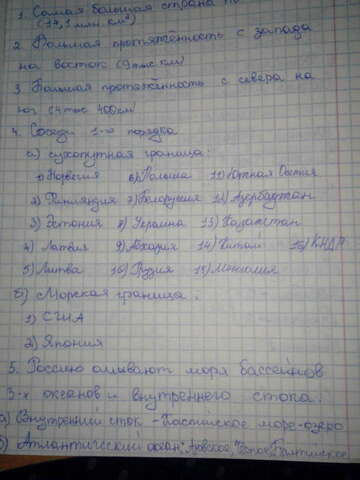 1. Самая большая страна по
(17,1 млн. км²)
2. Большая протяжённость с запада
на восток (9 тыс км)
3. Большая протяжённость с севера на
юг (4 тыс 400 км)
4. Соседи 1-го порядка
а) сухопутная граница:
1) Норвегия 6) Польша 11) Южная Осетия
2) Финляндия 7) Белоруссия 12) Азербайджан
3) Эстония 8) Украина 13) Казахстан
4) Латвия 9) Абхазия 14) Китай 16) КНДР
5) Литва 10) Грузия 15) Монголия
б) Морская граница:
1) США
2) Япония
5. Россию омывают моря бассейнов
3-х океанов и внутреннего стока:
а) Внутренний сток - Каспийское море-озеро
б) Атлантический океан: Азовское, Чёрное, Балтийское